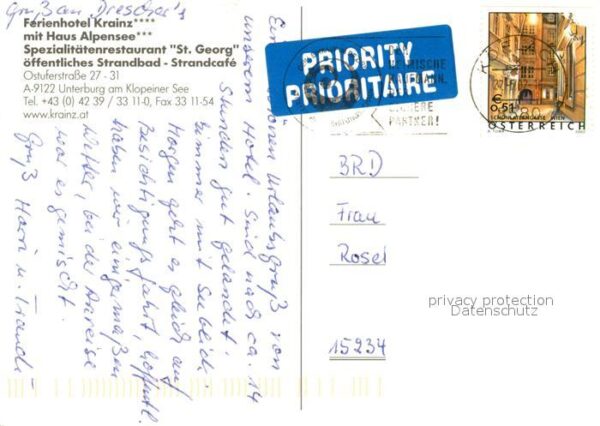 Gruß an "Drescher's
Ferienhotel Krainz****
mit Haus Alpensee***
Spezialitätenrestaurant "St. Georg"
öffentliches Strandbad - Strandcafé
Ostuferstraße 27 - 31
A-9122 Unterburg am Klopeiner See
Tel. +43 (0) 42 39 / 33 11-0, Fax 33 11-54
www.krainz.at
Einen schönen Urlaubsgruß von
unserem Hotel. Sind nach ca. 14
Stunden gut gelandet.
Zimmer mit Seeblick.
Morgen geht es gleich auf
Besichtigungsfahrt, hoffentl.
haben wir einigermaßen
Wetter, bei der Anreise
war es gemischt.
Gruß Harri u. Traudl
PRIORITY
PRIORITAIRE
PARTNER!
€ 0,51
ÖSTERREICH
BRD
Frau
Rosel
15234
privacy protection
Datenschutz